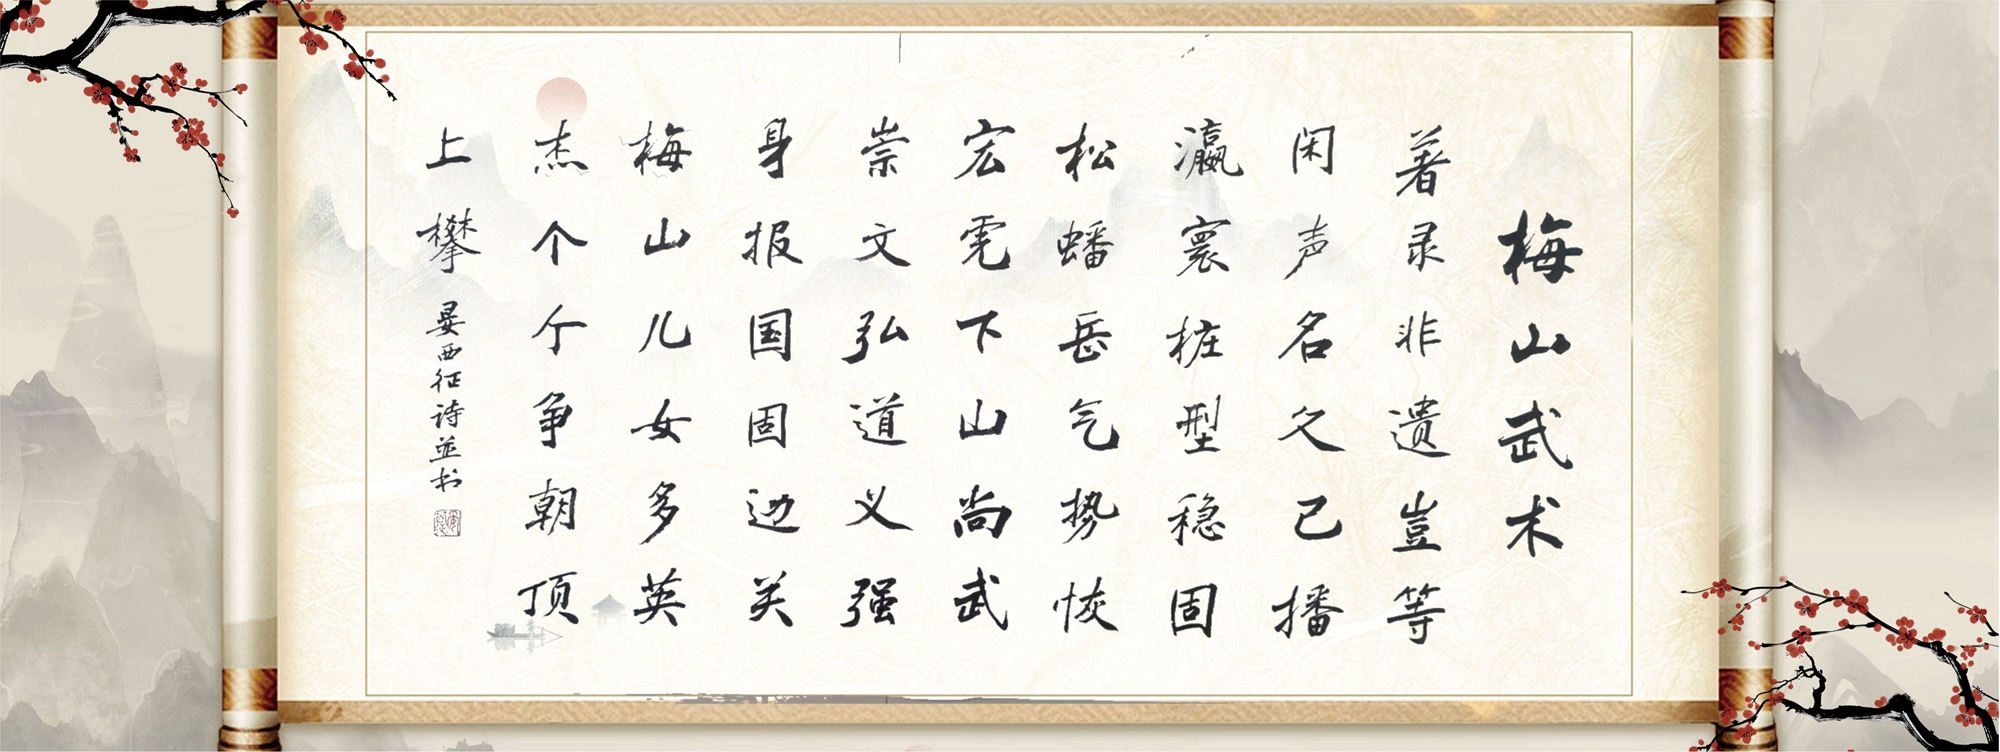 梅山武术
著录非遗岂等
闲声名久已播
瀛寰桩型稳固
松蟠岳气势恢
宏霓下山尚武
崇文弘道义强
身报国固边关
梅山儿女多英
杰个个争朝顶
上攀 晏西征诗并书